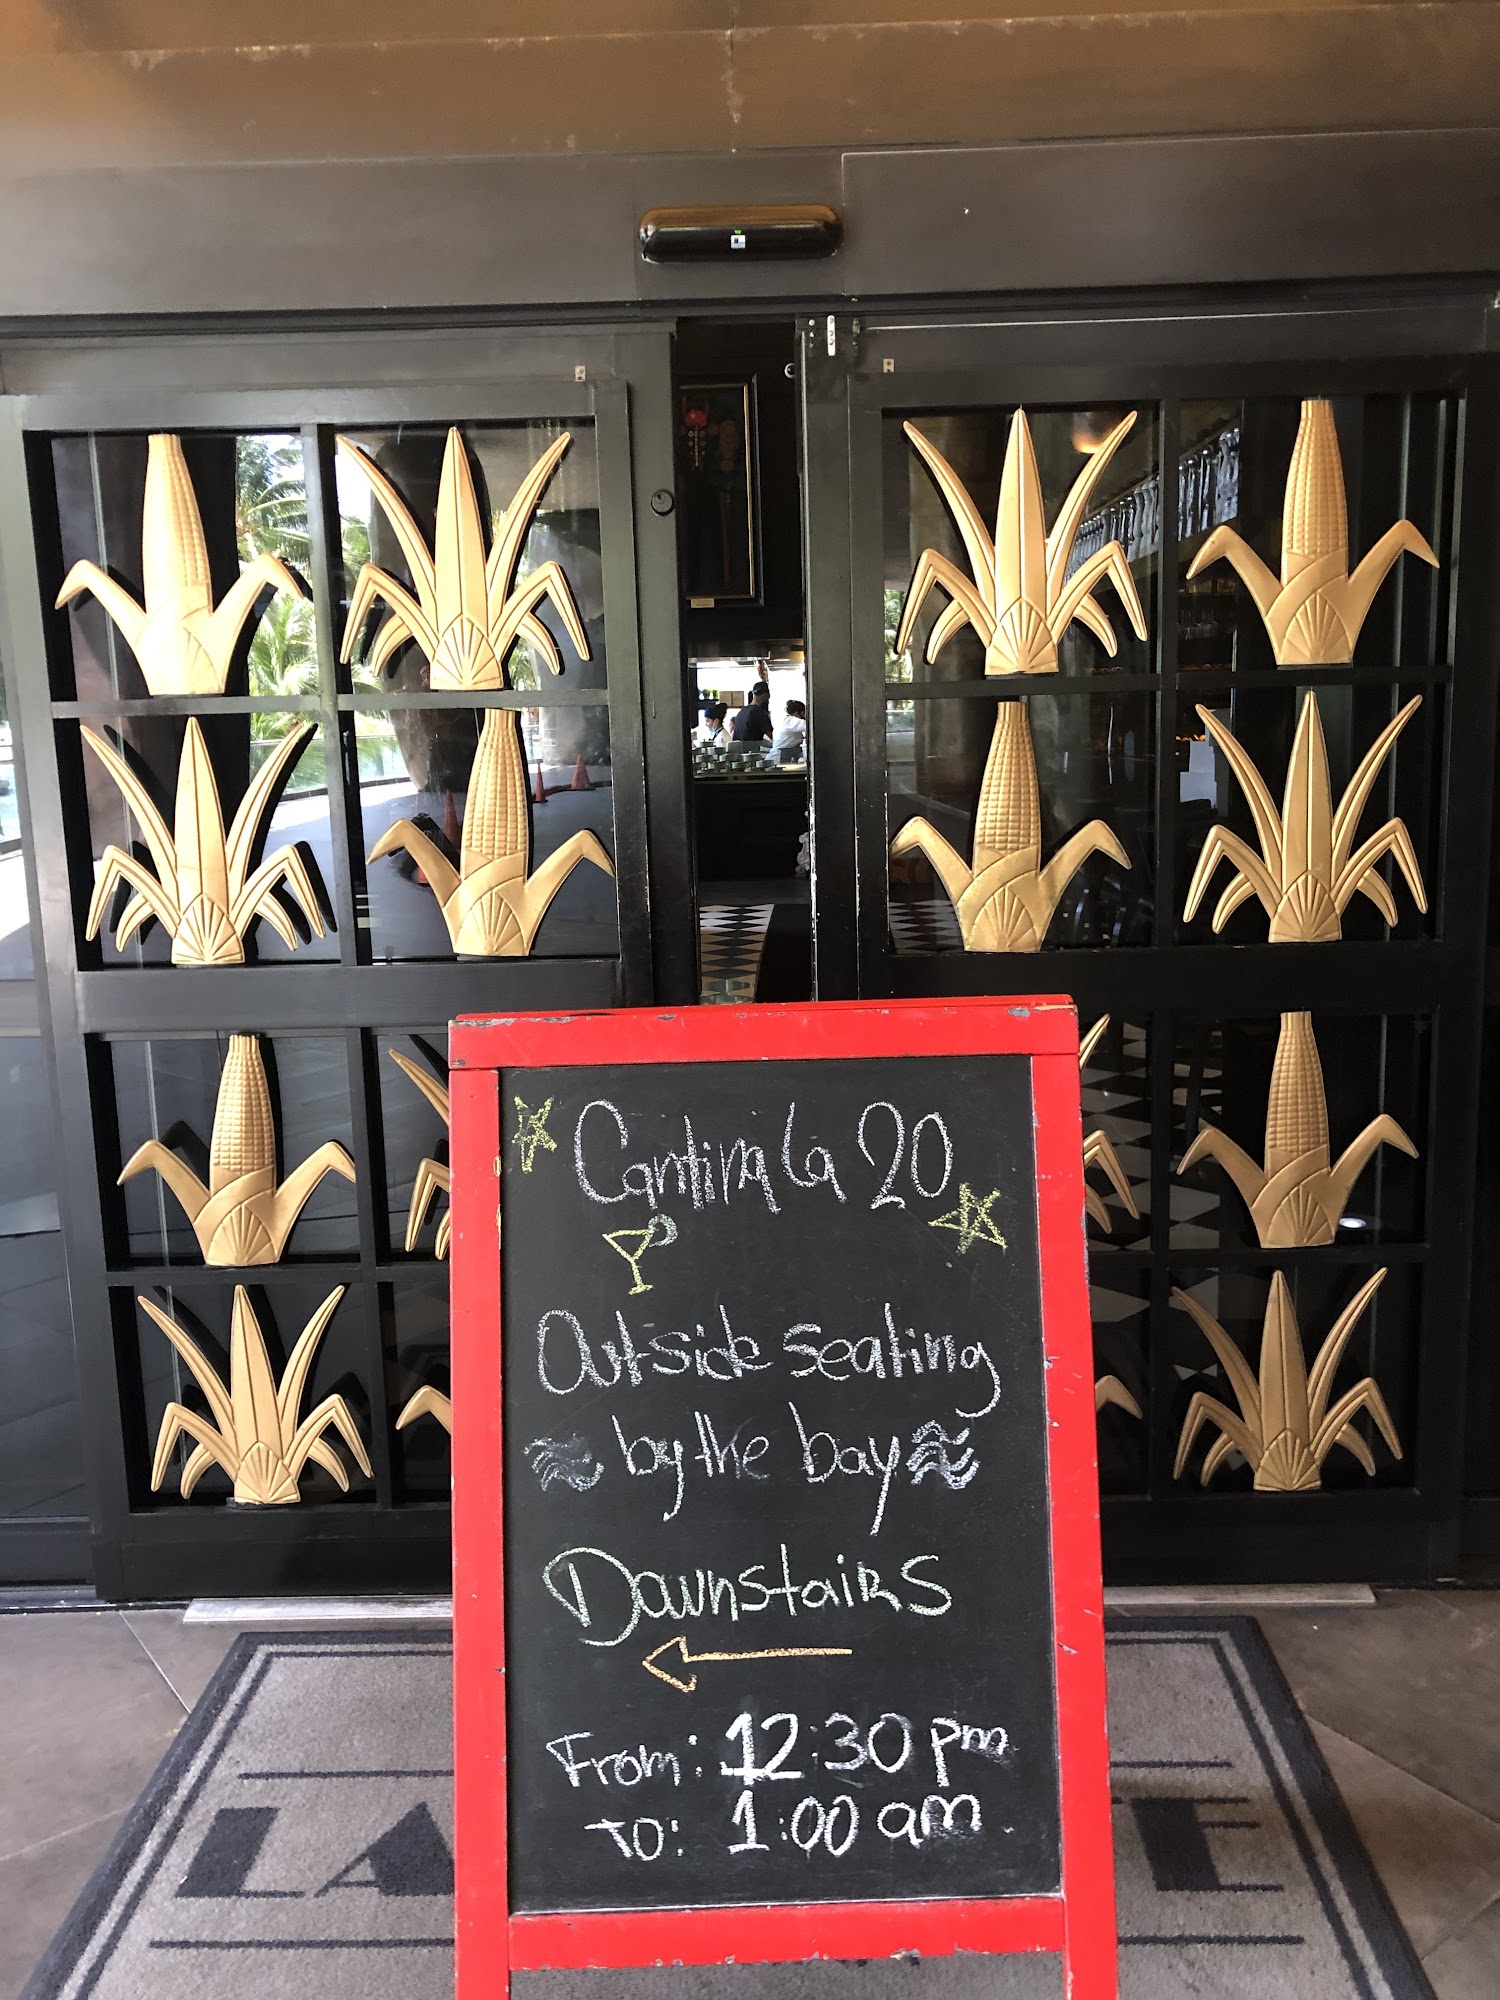 Cantina la 20
Outside seating
by the bay
Downstairs
From: 12:30 pm
To: 1:00 am
LA
TE